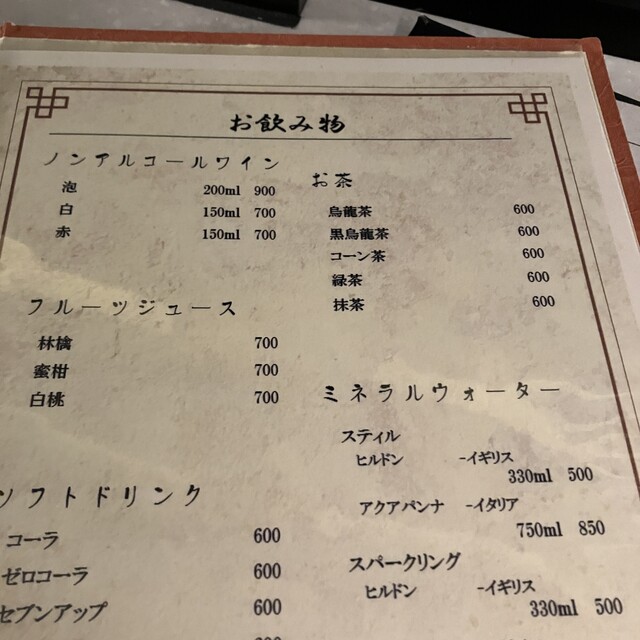 お飲み物
ノンアルコールワイン
泡 200ml 900
白 150ml 700
赤 150ml 700
フルーツジュース
林檎 700
蜜柑 700
白桃 700
ソフトドリンク
コーラ 600
ゼロコーラ 600
セブンアップ 600
お茶
烏龍茶 600
黒烏龍茶 600
コーン茶 600
緑茶 600
抹茶 600
ミネラルウォーター
スティル
ヒルドン -イギリス
330ml 500
アクアパンナ -イタリア
750ml 850
スパークリング
ヒルドン -イギリス
330ml 500